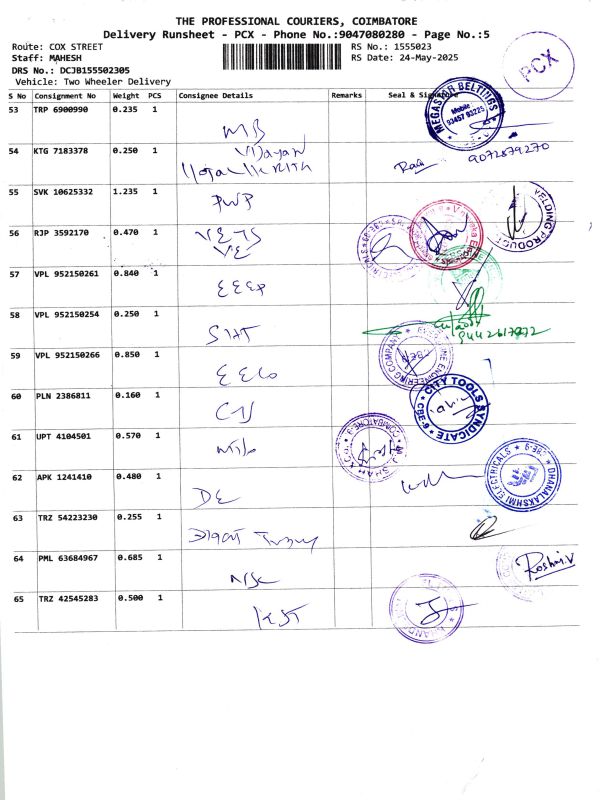 THE PROFESSIONAL COURIERS, COIMBATORE
Delivery Runsheet - PCX - Phone No.:9047080280 - Page No.:5
Route: COX STREET RS No.: 1555023
Staff: MAHESH RS Date: 24-May-2025
DRS No.: DCJB155502305
Vehicle: Two Wheeler Delivery
PCX
S No Consignment No Weight PCS Consignee Details Remarks Seal & Signature
53 TRP 6900990 0.235 1 MB
MEGASTAR BELTINGS
Mobile
93457 93225
54 KTG 7183378 0.250 1 Vijayan
9072879270
55 SVK 10625332 1.235 1 PWP
WELDING PRODUCT
56 RJP 3592170 0.470 1 VETS
VE
57 VPL 952150261 0.840 1 EEEP
58 VPL 952150254 0.250 1 SHT
9442617872
59 VPL 952150266 0.850 1 EECo
ENGINEERING COMPANY
60 PLN 2386811 0.160 1 CTS
CITY TOOLS SYNDICATE
61 UPT 4104501 0.570 1
COIMBATORE
62 APK 1241410 0.480 1 DE
DHANALAKSHMI ELECTRICALS
63 TRZ 54223230 0.255 1
64 PML 63684967 0.685 1 NSC
Roshni.V
65 TRZ 42545283 0.500 1 KST